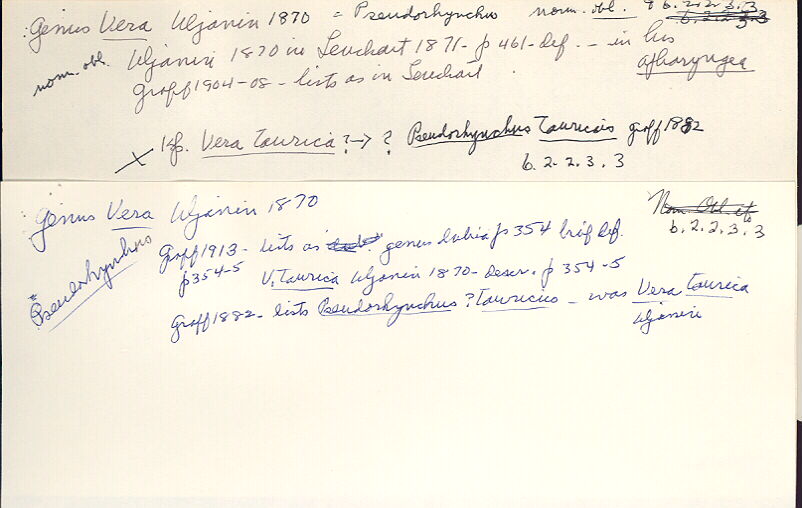 Genus Vera Uljanin 1870 = Pseudorhynchus nom. obl. 8 6.2.2.3.3
6.2.2.3.3
nom. obl. Uljanin 1870 in Leuckart 1871 - p 461 - def. - in his apharyngea
Graff 1904-08 - lists as in Leuckart.
Vera Taurica ? → ? Pseudorhynchus Tauricus Graff 1882
6.2.2.3.3
Genus Vera Uljanin 1870
Nom. Obl. etc
6.2.2.3.3
= Pseudorhynchus
Graff 1913 - lists as genus dubia p 354 brief def.
p 354-5 V. Taurica Uljanin 1870 - Descr. p 354-5
Graff 1882 - lists Pseudorhynchus ? Tauricus - was Vera taurica
Uljanin